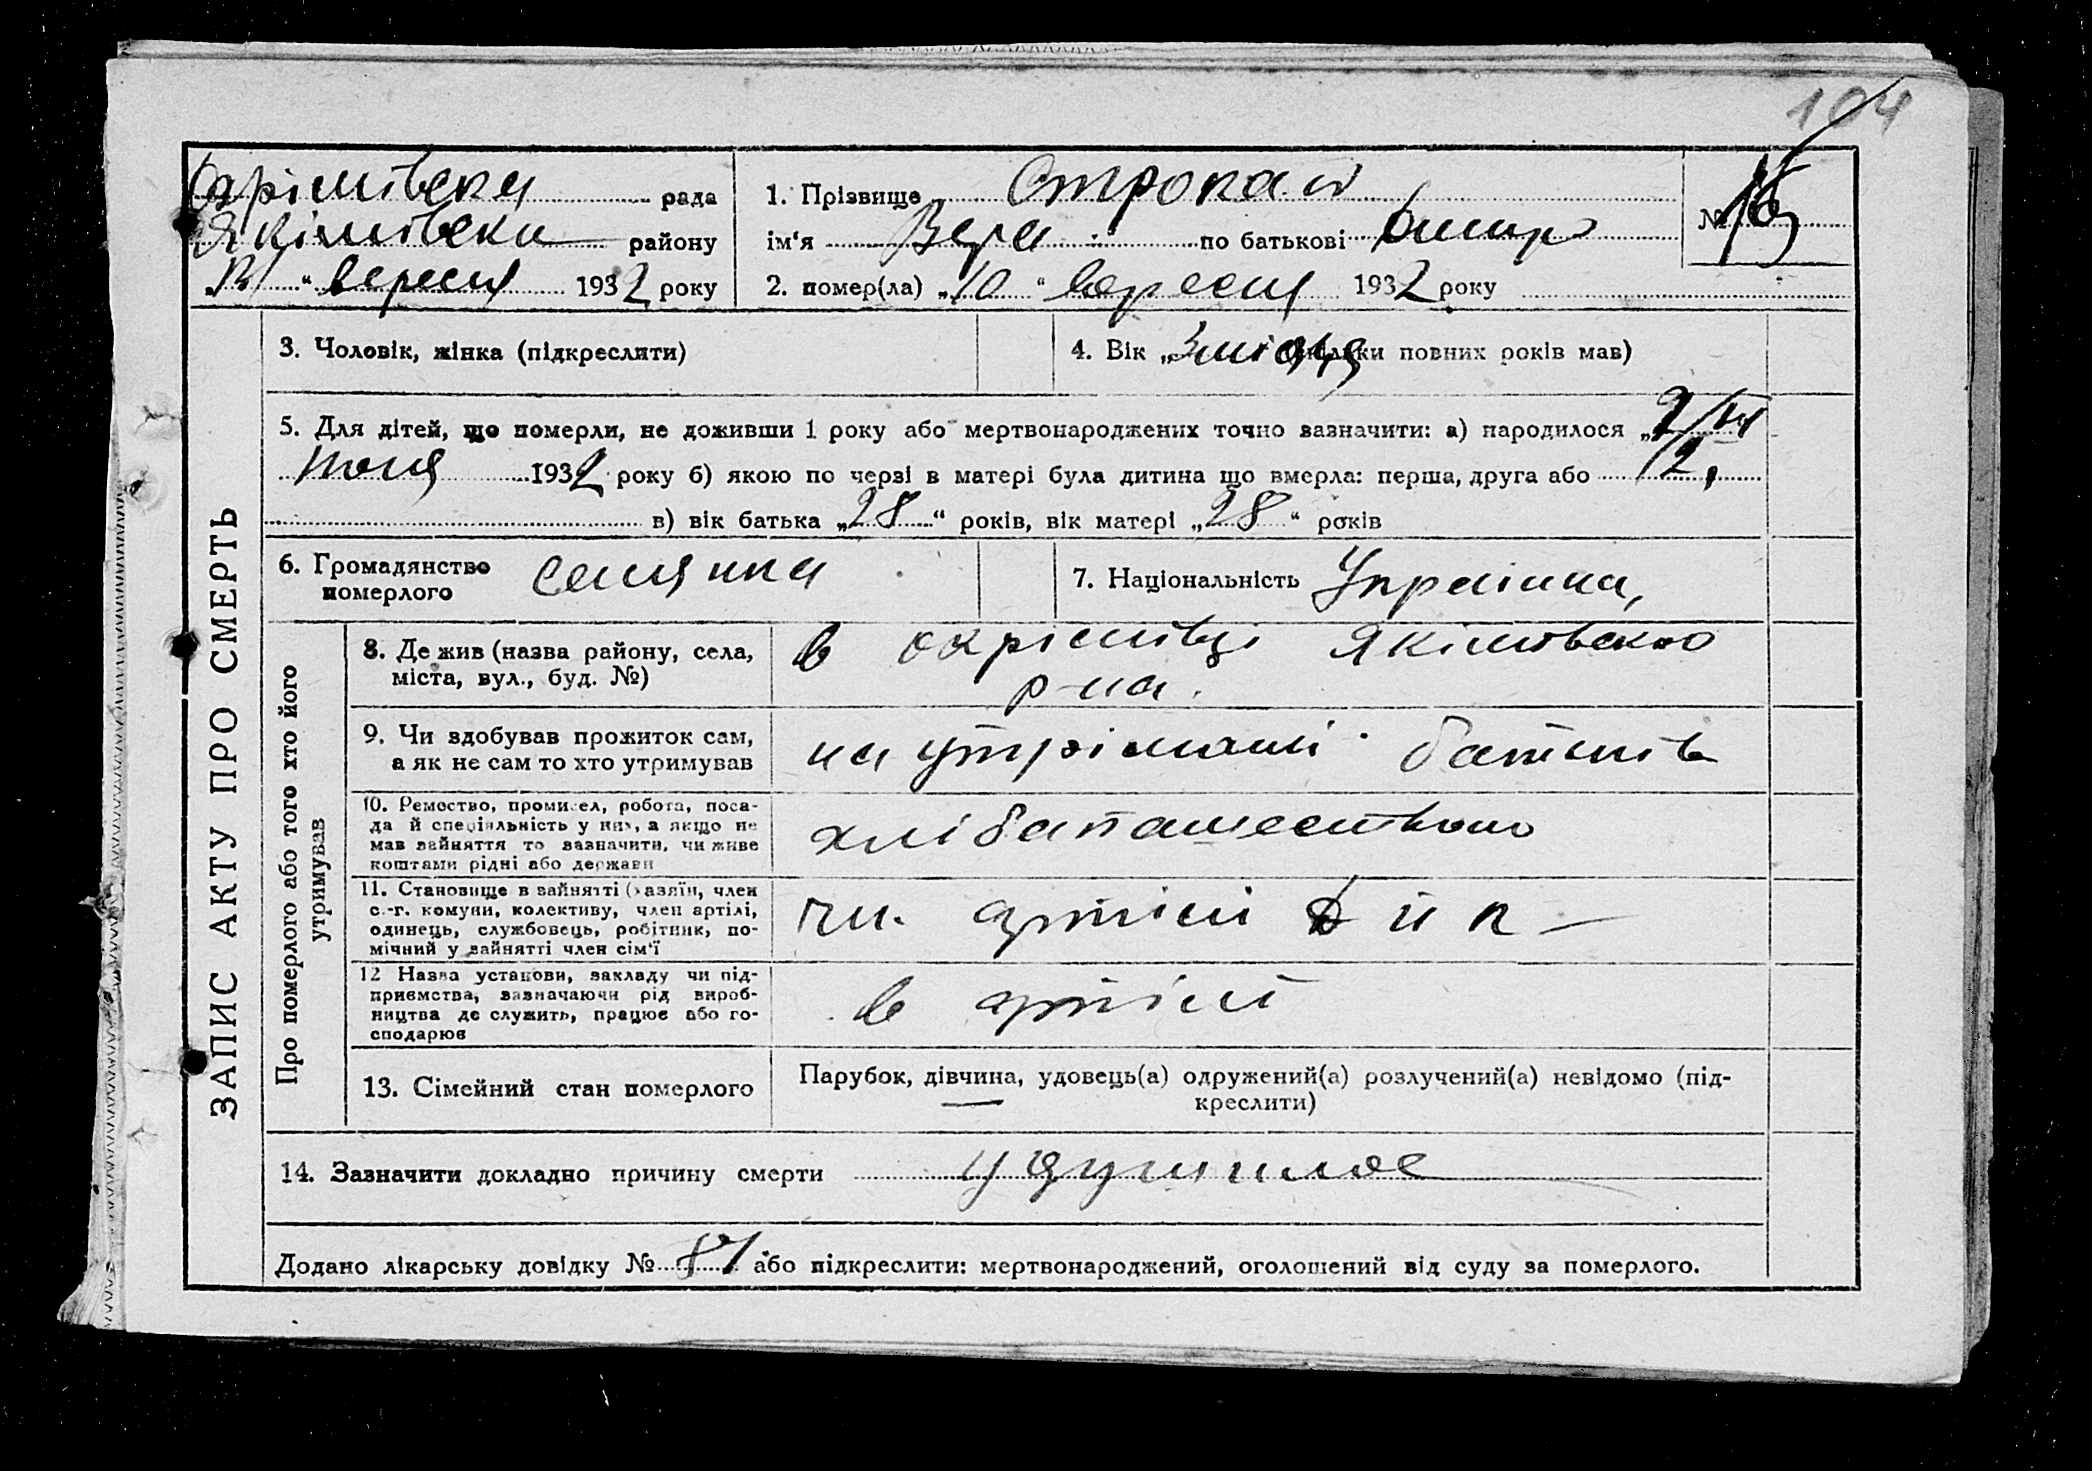 104
Окрімівська рада
1. Прізвище Строкань
№
Якімівськи району
ім'я Вера по батькові
" вересня 1932 року
2. помер(ла) „10" вересня 1932 року
3. Чоловік, жінка (підкреслити)
4. Вік „3 місяця (скільки повних років мав)
5. Для дітей, що померли, не доживши 1 року або мертвонароджених точно зазначити: а) народилося „
1932 року б) якою по черзі в матері була дитина що вмерла: перша, друга або 2,
в) вік батька „28" років, вік матері „28" років
6. Громадянство померлого селянка
7. Національність Українка,
ЗАПИС АКТУ ПРО СМЕРТЬ
Про померлого або того хто його
утримував
8. Де жив (назва району, села,
міста, вул., буд. №)
в окрімівці Якімовского
р-на.
9. Чи здобував прожиток сам,
а як не сам то хто утримував
на утріманні батьків
10. Ремество, промисел, робота, поса-
да й спеціяльність у них, а якщо не
мав зайняття то зазначити, чи живе
коштами рідні або держави
хлібапашеством
11. Становище в зайнятті (хазяїн, член
с.-г. комуни, колективу, член артілі,
одинець, службовець, робітник, по-
мічний у зайнятті член сім'ї
чл. артілі
12 Назва установи, закладу чи під-
приємства, зазначаючи рід вироб-
ництва де служить, працює або го-
сподарює
в артілі
13. Сімейний стан померлого
Парубок, дівчина, удовець(а) одружений(а) розлучений(а) невідомо (під-
креслити)
14. Зазначити докладно причину смерти
Додано лікарську довідку № 87 або підкреслити: мертвонароджений, оголошений від суду за померлого.